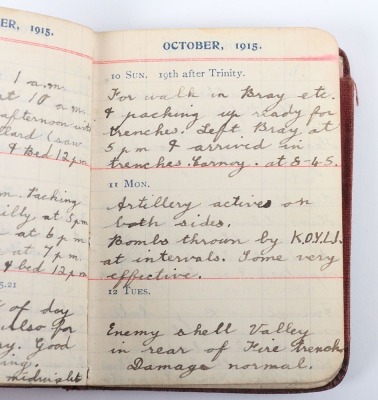 ER, 1915.
1 a.m.
at 10 a.m.
afternoon with
& Bed 12 pm
m. Packing
at 5 pm
at 6 pm
at 7 pm.
& bed 12 pm
5.21
t of day
also for
ry. Good
ing.
midnight!
OCTOBER, 1915.
10 SUN. 19th after Trinity.
For walk in Bray etc.
& packing up ready for
trenches. Left Bray at
5 pm & arrived in
trenches. Carnoy. at 8-45.
11 MON.
Artillery actives on
both sides.
Bombs thrown by K.O.Y.L.I.
at intervals. Some very
effective.
12 TUES.
Enemy shell Valley
in rear of Fire trench
Damage normal.